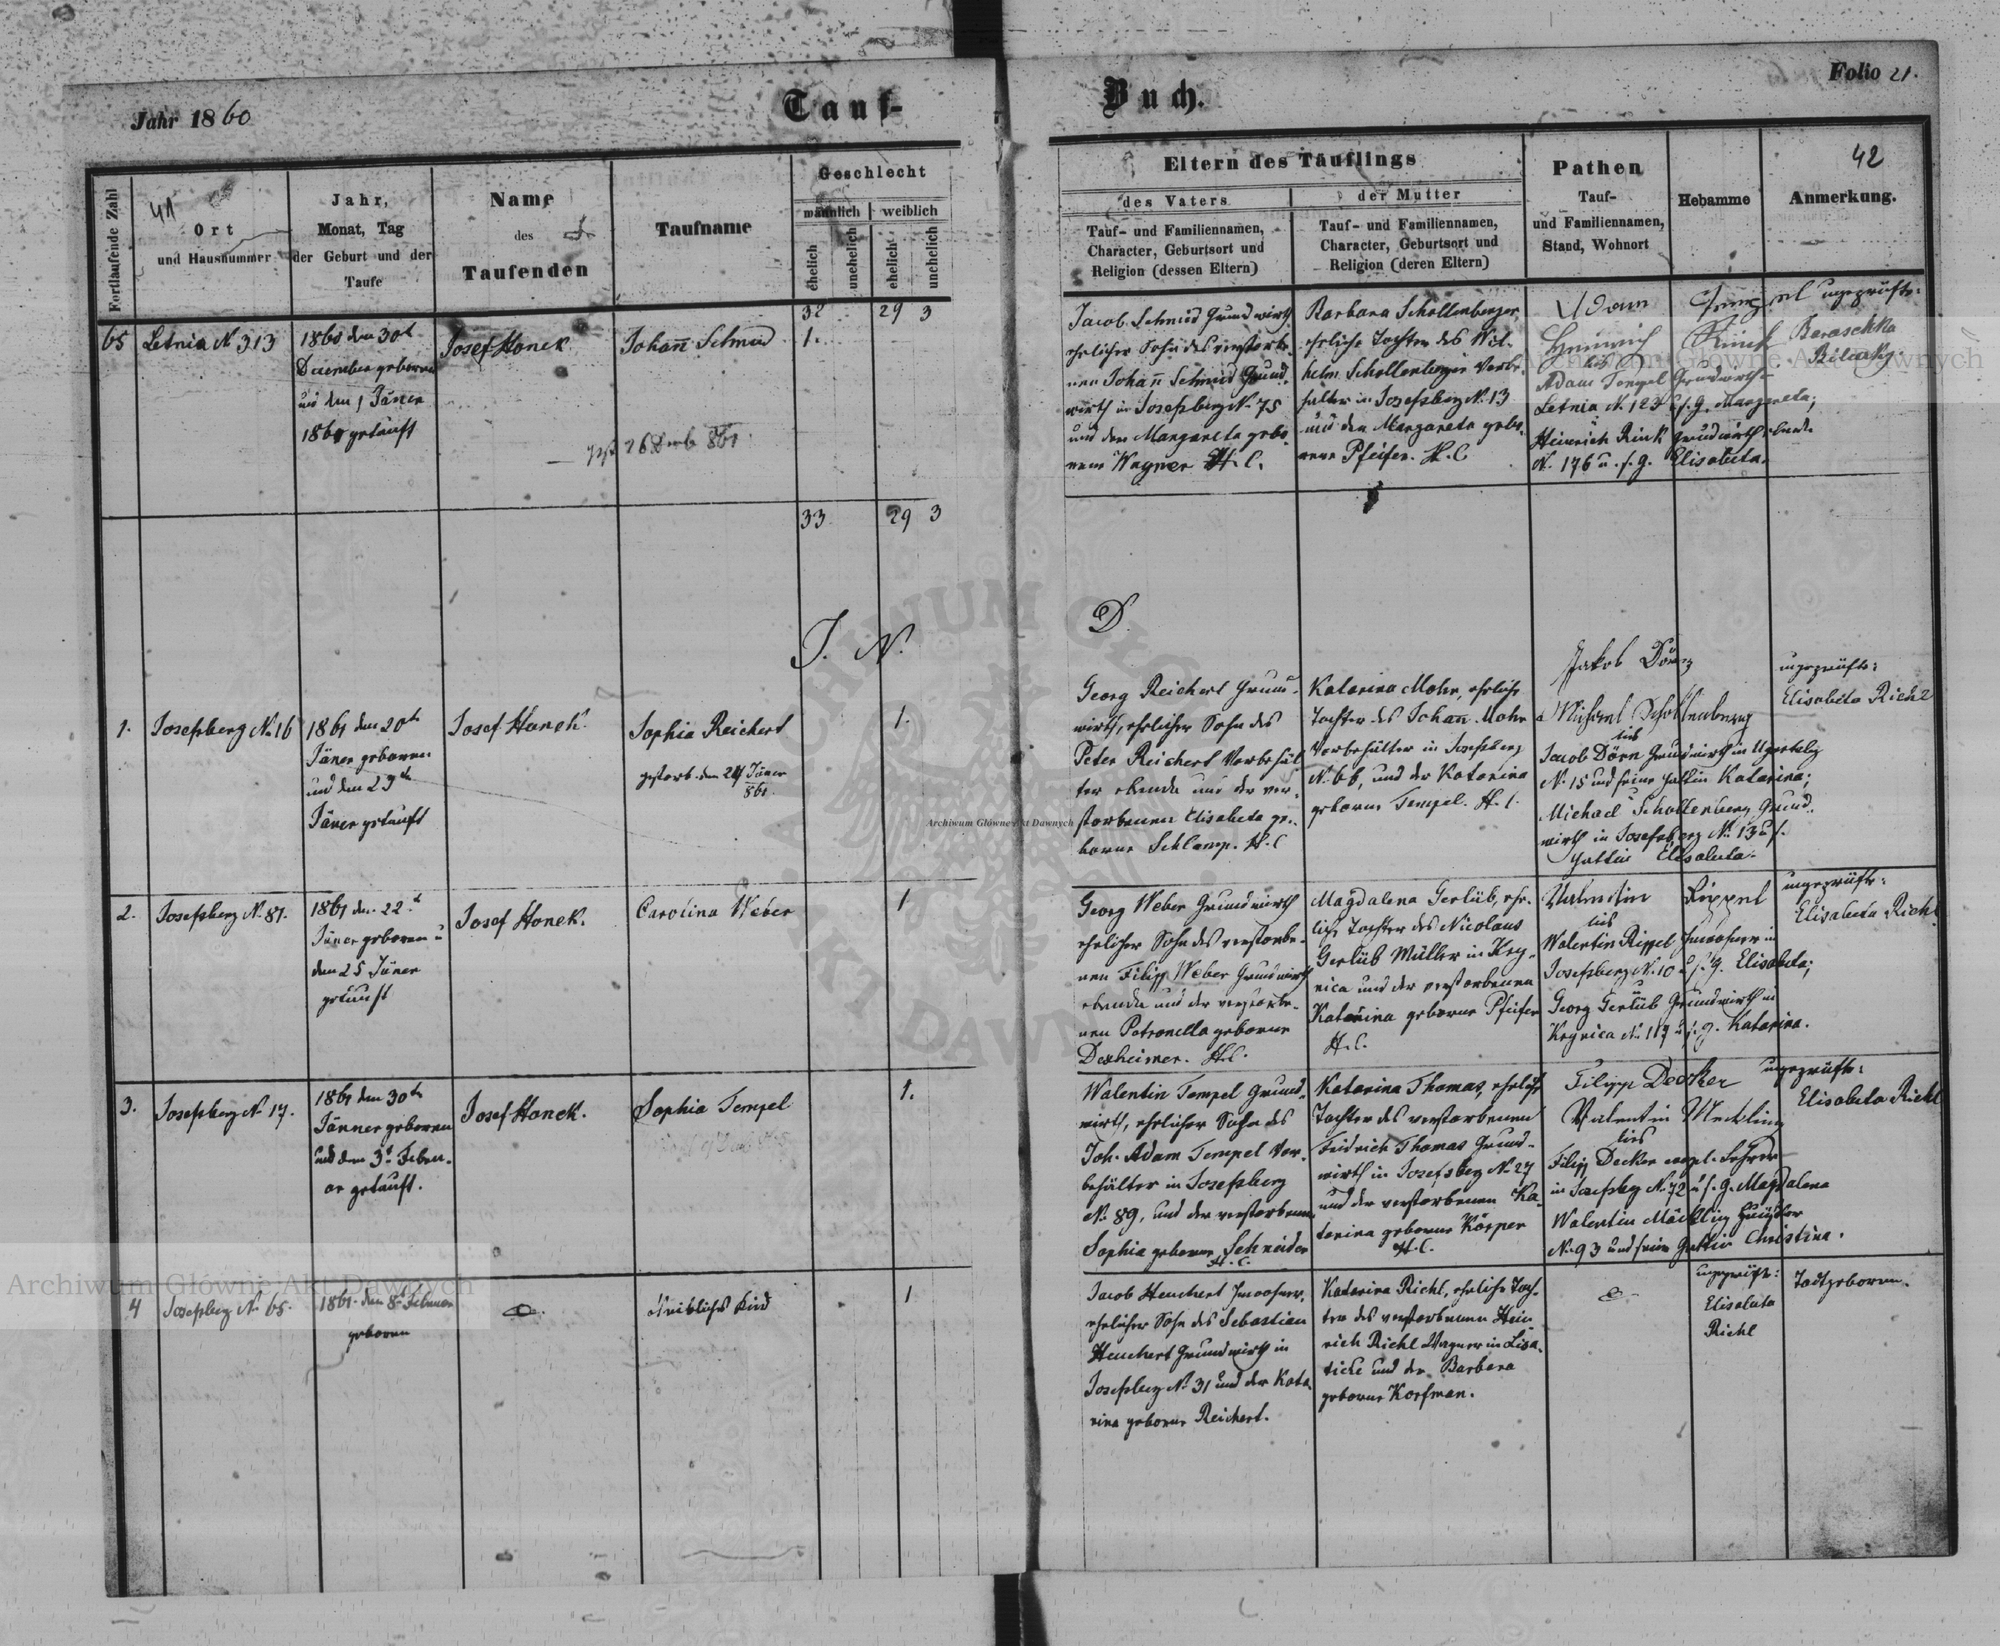 Jahr 1860
Tauf-
Buch.
Folio 21.
Fortlaufende Zahl
41
Ort
und Hausnummer
Jahr,
Monat, Tag
der Geburt und der
Taufe
Name
des
Taufenden
Taufname
Geschlecht
männlich
weiblich
ehelich
unehelich
ehelich
unehelich
Eltern des Täuflings
des Vaters
Tauf- und Familiennamen,
Character, Geburtsort und
Religion (dessen Eltern)
der Mutter
Tauf- und Familiennamen,
Character, Geburtsort und
Religion (deren Eltern)
Pathen
Tauf-
und Familiennamen,
Stand, Wohnort
Hebamme
42
Anmerkung.
32 29 3
65
Letnia N 313
1860 den 30t
December geboren
und den 1 Jäner
186 getauft
Josef Honek
Johañ Schmid
1.
26 Decb 861
Jacob Schmid Grundwirth
ehelicher Sohn des verstorbe-
nen Johañ Schmid Grund-
wirth in Josefsberg N. 75
und der Margareta gebo-
rene Wagner H. C.
Barbara Schollenberger,
eheliche Tochter des Wil-
helm Schollenberger Vorbe-
hälter in Josefsberg N. 13
und der Margareta gebo-
rene Pfeifer. H. C
Adam Tempel
Heinrich Rink
Adam Tempel Grundwirth
Letnia N. 123 u s. g. Margareta;
Heinrich Rink Grundwirth ebenda
N. 176 u. s. g. Elisabeta.
ungeprüfte:
Baraschka
33 29 3
J. N.
D.
1.
Josefsberg N. 16
1861 den 20t
Jäner geboren
und den 23t
Jäner getauft
Josef Honek
Sophia Reichert
gestorb. den 24 Jäner
861.
1.
Georg Reichert Grund-
wirth, ehelicher Sohn des
Peter Reichert Vorbehäl-
ter ebenda und der ver-
storbenen Elisabeta ge-
borne Schlamp. H. C
Katarina Mohr, eheliche
Tochter des Johañ Mohr
Vorbehälter in Josefsberg
N. 66, und der Katarina
geborne Tempel. H. C.
Jakob Dörn
Michael Schollenberger
Jacob Dörn Grundwirth in Ugartsberg
N. 15 und seine Gattin Katarina;
Michael Schollenberg Grund-
wirth in Josefsberg N. 13 u s.
Gattin Elisabeta.
ungeprüfte:
Elisabeta Richl
2.
Josefsberg N. 87.
1861 den 22t
Jäner geboren u
den 25 Jäner
getauft
Josef Honek.
Carolina Weber
1
Georg Weber Grundwirth
ehelicher Sohn des verstorbe-
nen Filipp Weber Grundwirth
ebenda und der verstorbe-
nen Petronella geborne
Dexheimer. H. C.
Magdalena Gerlüb, ehe-
liche Tochter des Nicolaus
Gerlüb Müller in Kry-
nica und der verstorbenen
Katarina geborne Pfeifer
H. C.
Valentin Rippel
Walentin Rippel Inwohner in
Josefsberg N. 10 u s. g. Elisabeta;
Georg Gerlüb Grundwirth in
Krynica N. 117 u s. g. Katarina.
ungeprüfte:
Elisabeta Richl
3.
Josefsberg N. 17.
1861 den 30t
Jänner geboren
und den 3t Febru-
ar getauft.
Josef Honek.
Sophia Tempel
1.
Walentin Tempel Grund-
wirth, ehelicher Sohn des
Joh. Adam Tempel Vor-
behälter in Josefsberg
N. 89, und der verstorbenen
Sophia geborne Schneider
H. C.
Katarina Thomas, eheliche
Tochter des verstorbenen
Fridrich Thomas Grund-
wirth in Josefsberg N. 27
und der verstorbenen Ka-
tarina geborne Körper
H. C.
Filipp Decker
Valentin Meckling
Filipp Decker evgel. Lehrer
in Josefsberg N. 72 u s. g. Magdalena
Walentin Mäckling Häusler
N. 93 und seine Gattin Christina.
ungeprüfte:
Elisabeta Richl
4
Josefsberg N. 65.
1861. den 8t Februar
geboren
Weibliches Kind
1
Jacob Heuchert Inwohner,
ehelicher Sohn des Sebastian
Heuchert Grundwirth in
Josefsberg N. 31 und der Kata-
rina geborne Reichert.
Katarina Richl, eheliche Toch-
ter des verstorbenen Hein-
rich Richl Wagner in
und der Barbara
geborne Korfman.
ungeprüfte:
Elisabeta
Richl
Todtgeboren.
Archiwum Główne Akt Dawnych
Archiwum Główne Akt Dawnych
Archiwum Główne Akt Dawnych